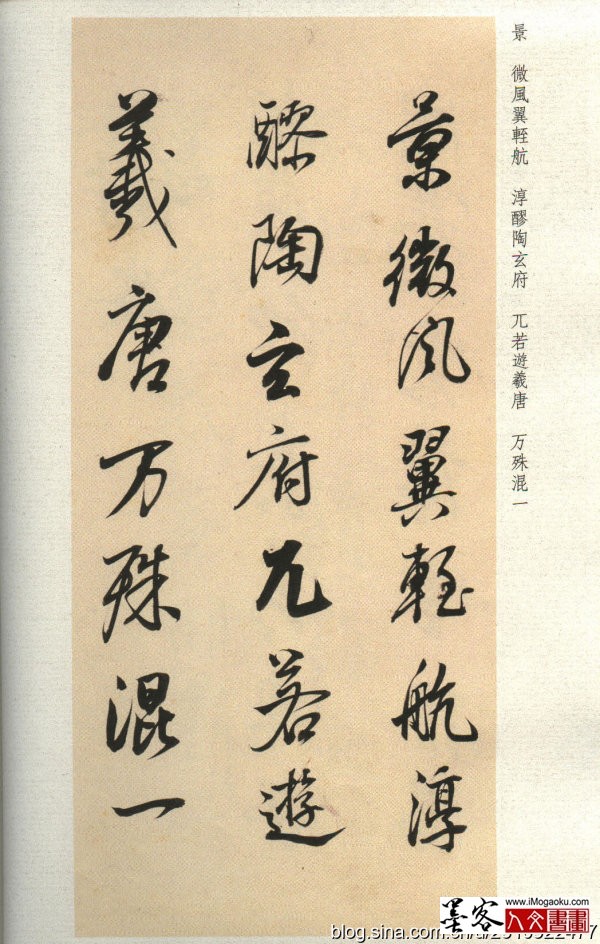 景 微風翼輊航 淳醪陶玄府 兀若遊羲唐 万殊混一
景微風翼輊航淳
醪陶玄府兀若遊
羲唐万殊混一
www.iMogaoku.com
墨客 人文書畫